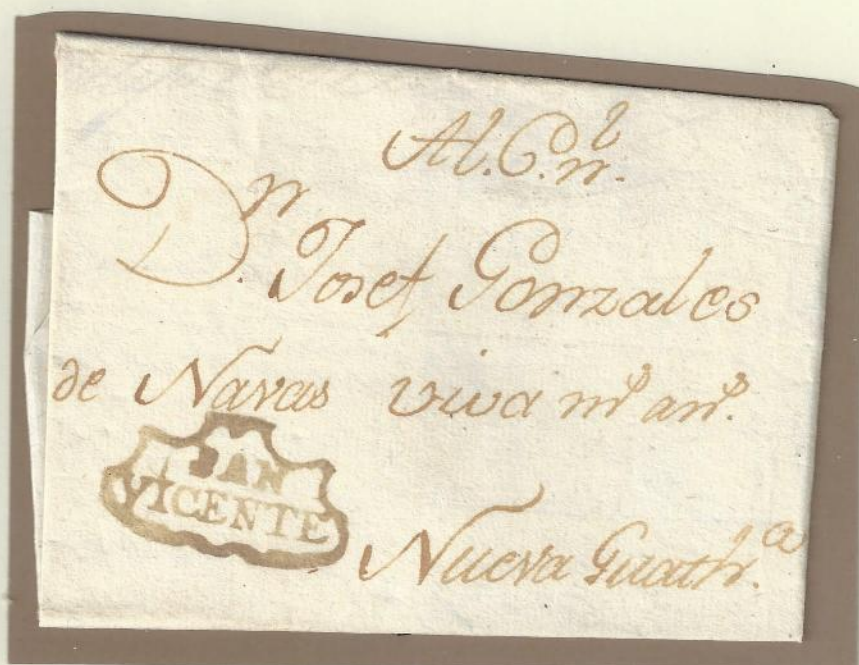 Al. C.nl.
Dn. Josef Gonzales
de Navas viva ms. as.
SAN
VICENTE
Nueva Guath.a